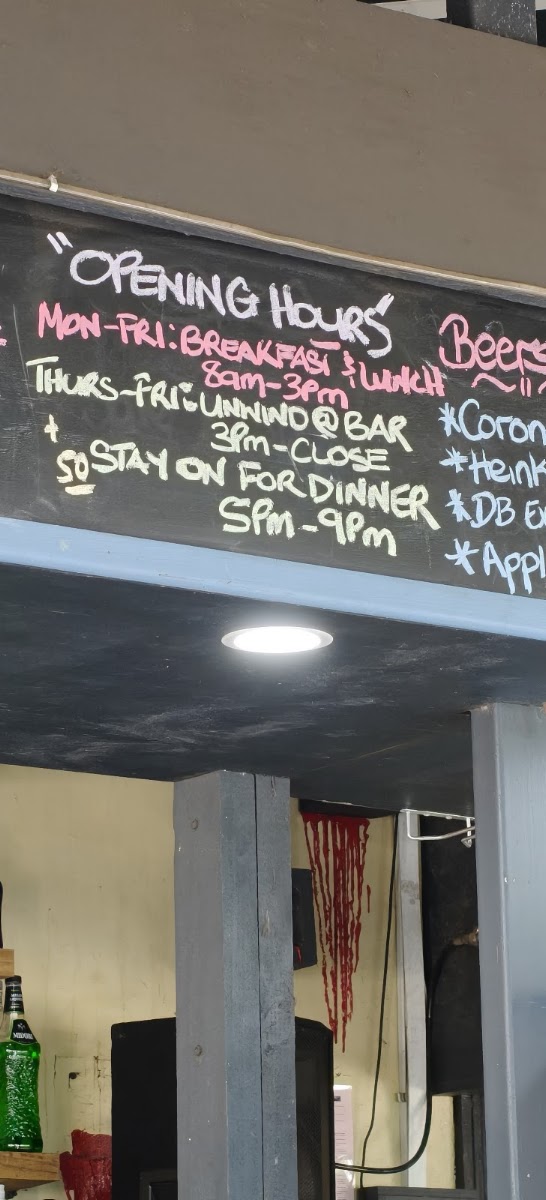 "OPENING HOURS"
MON-FRI: BREAKFAST & LUNCH
8am-3pm
THURS-FRI: UNWIND @ BAR
3PM-CLOSE
+
SO STAY ON FOR DINNER
5pm-9pm
Beers
*Coron
*Heink
*DB Ex
*Appl